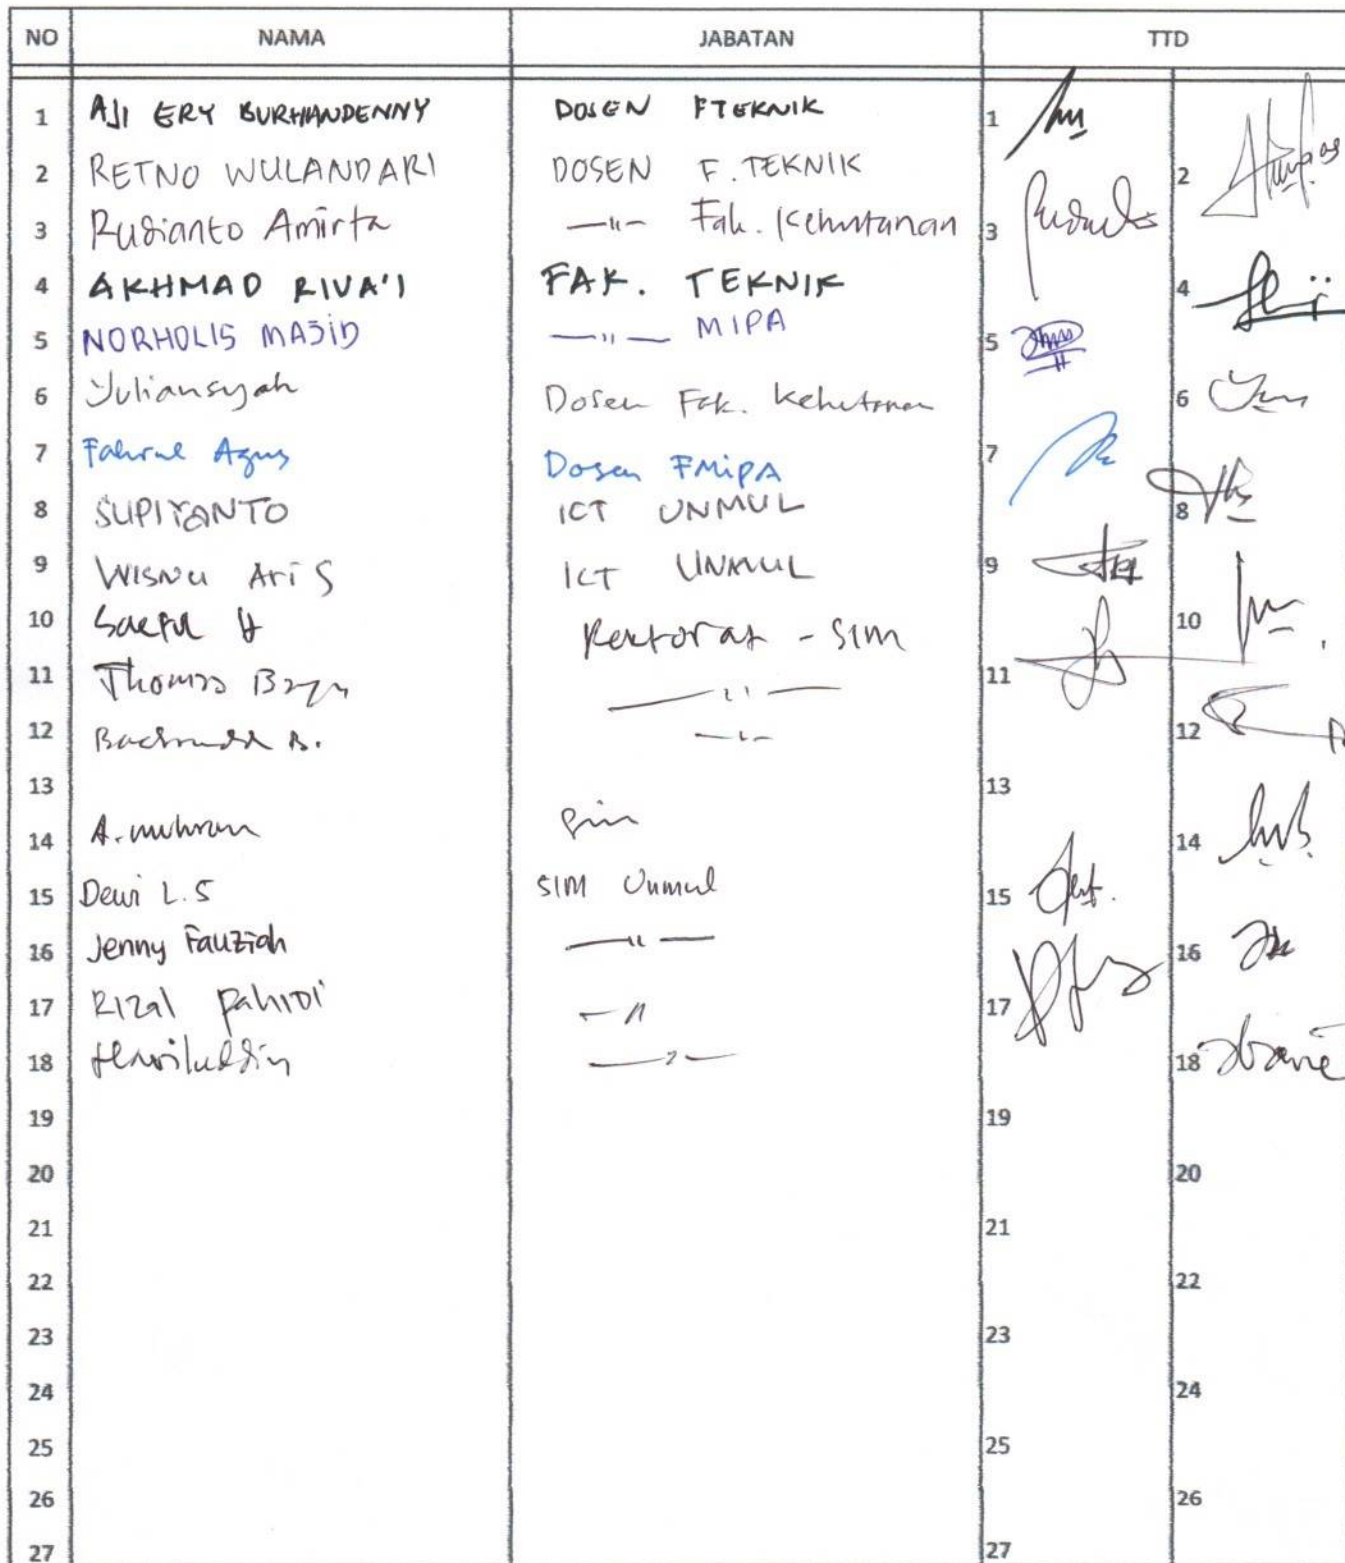 NO NAMA JABATAN TTD
1 AJI ERY BURHANDENNY DOSEN FTEKNIK 1
2 RETNO WULANDARI DOSEN F. TEKNIK 2
3 Rudianto Amirta —"— Fak. Kehutanan 3
4 AKHMAD RIVA'I FAK. TEKNIK 4
5 NORHOLIS MAJID —"— MIPA 5
6 Yuliansyah Dosen Fak. Kehutanan 6
7 Fahrul Agus Dosen FMIPA 7
8 SUPIYANTO ICT UNMUL 8
9 WISNU Ari S ICT UNMUL 9
10 Saeful H Rektorat - SIM 10
11 Thomas —"— 11
12 B. —"— 12
13 13
14 A. 14
15 Dewi L.S SIM Unmul 15
16 Jenny Fauziah —"— 16
17 Rizal pahroi —" 17
18 Hariluddin —"— 18
19 19
20 20
21 21
22 22
23 23
24 24
25 25
26 26
27 27